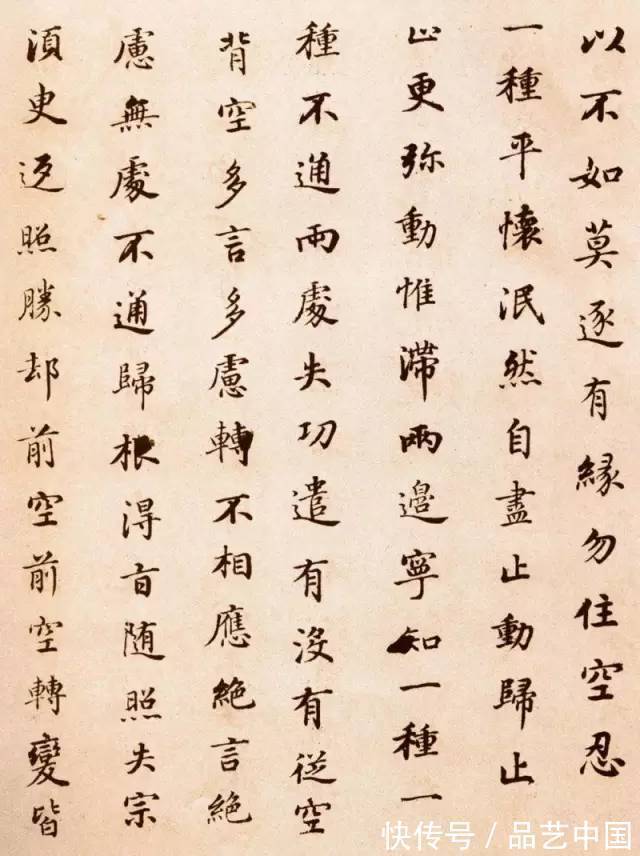 以不如莫逐有縁勿住空忍
一種平懷泯然自盡止動歸止
止更弥動惟滞兩邉寧知一種一
種不通兩處失功遣有没有従空
背空多言多慮轉不相應絶言絶
慮無處不通歸根得旨随照失宗
須臾返照勝却前空前空轉變皆
快传号 / 品艺中国